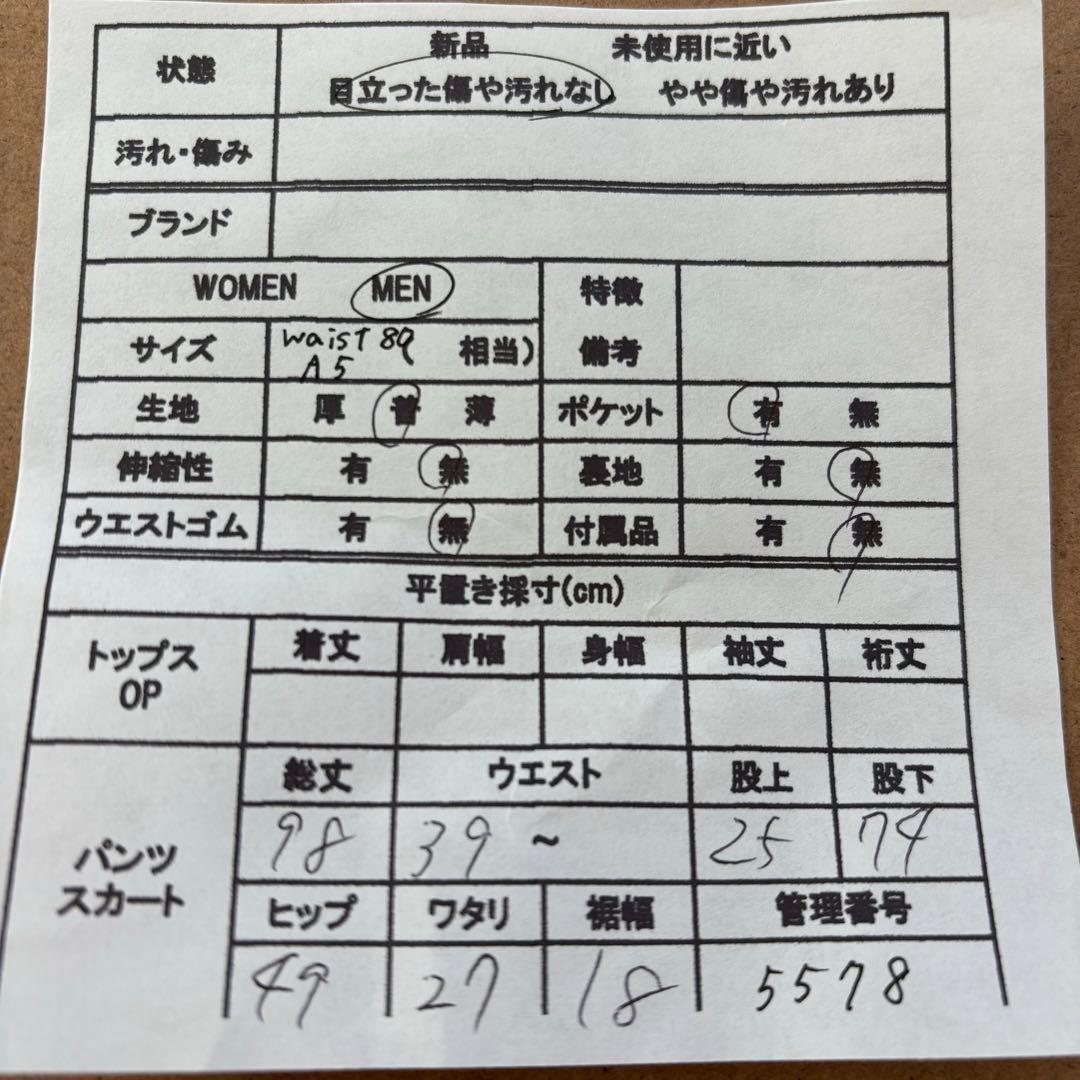 状態 新品 未使用に近い
目立った傷や汚れなし やや傷や汚れあり
汚れ・傷み
ブランド
WOMEN MEN 特徴
備考
サイズ waist 80 ( 相当)
A5
生地 厚 普 薄 ポケット 有 無
伸縮性 有 無 裏地 有 無
ウエストゴム 有 無 付属品 有 無
平置き採寸(cm)
トップス
OP
着丈 肩幅 身幅 袖丈 裄丈
パンツ
スカート
総丈 ウエスト 股上 股下
98 39 ~ 25 74
ヒップ ワタリ 裾幅 管理番号
49 27 18 5578